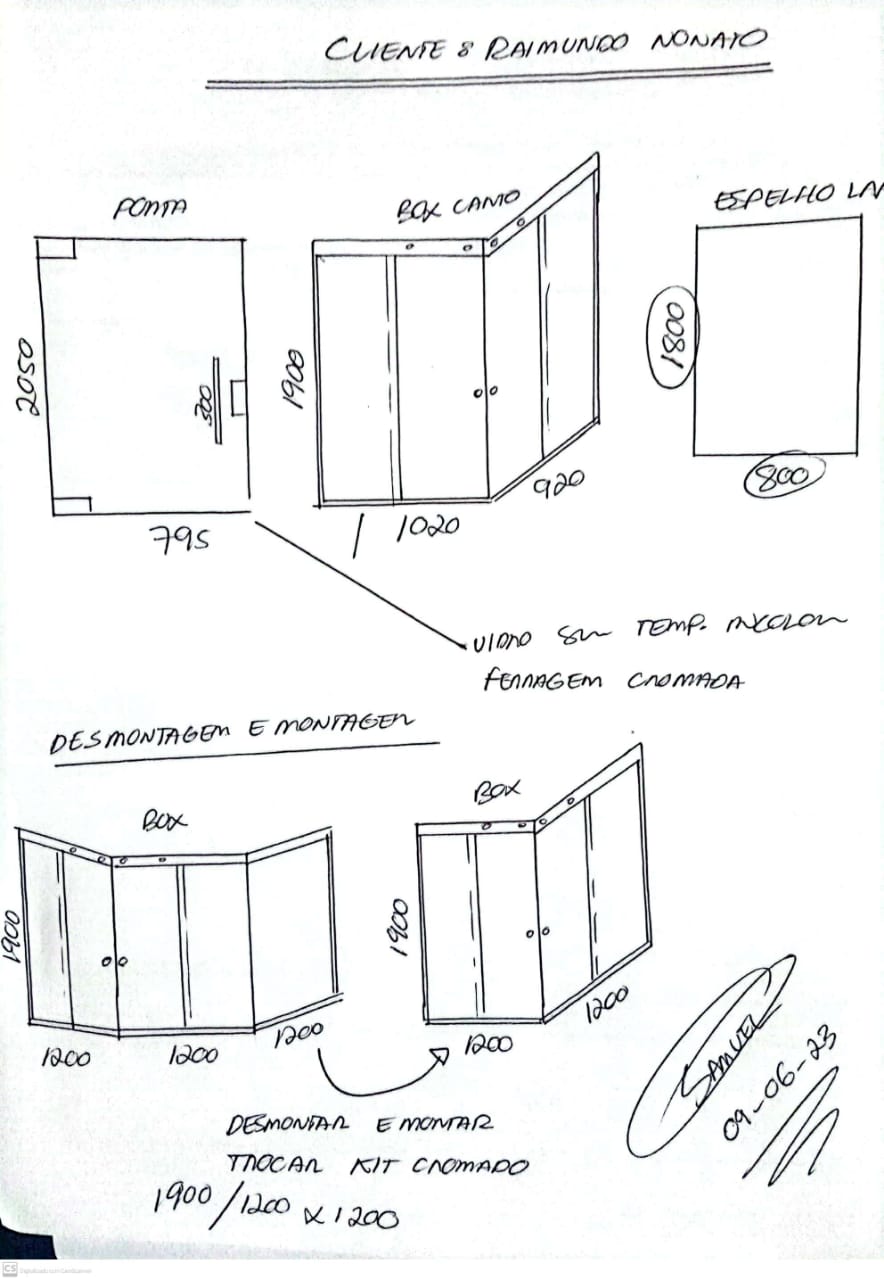 CLIENTE : RAIMUNDO NONATO
PORTA
BOX CANTO
ESPELHO
2050
300
795
1900
1020
920
1800
800
VIDRO 8mm TEMP. INCOLOR
FERRAGEM CROMADA
DESMONTAGEM E MONTAGEM
BOX
1900
1200
1200
1200
BOX
1900
1200
1200
DESMONTAR E MONTAR
TROCAR KIT CROMADO
1900/1200 X 1200
SAMUEL
09-06-23
CS Digitalizado com CamScanner